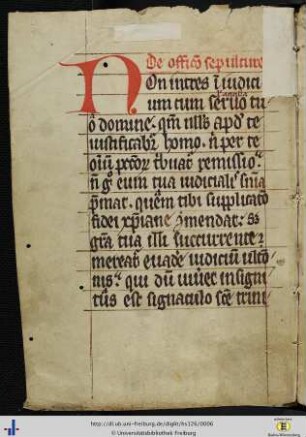 De officō sepulture
Non intres ī iudici
famula
um cum seruo tu
o domine. qm̄ null⁹ apd̓ te
iustificabit̓ homo. n̄ per te
oīu pctor̄ t̓buat̓ remissio.
n̄ gͦ eum tua iudicialē sn̄ia
p̄mat. quem tibi supplicatō
fidei xp̄iane ꝯmendat: Sꝫ
gr̄a tua illi succurrente
mereat̓ euadē iudiciū ulcō
nis. qui dū uiuēt insigni
tus est signaculo scē trini
http://dl.ub.uni-freiburg.de/diglit/hs326/0006
© Universitätsbibliothek Freiburg